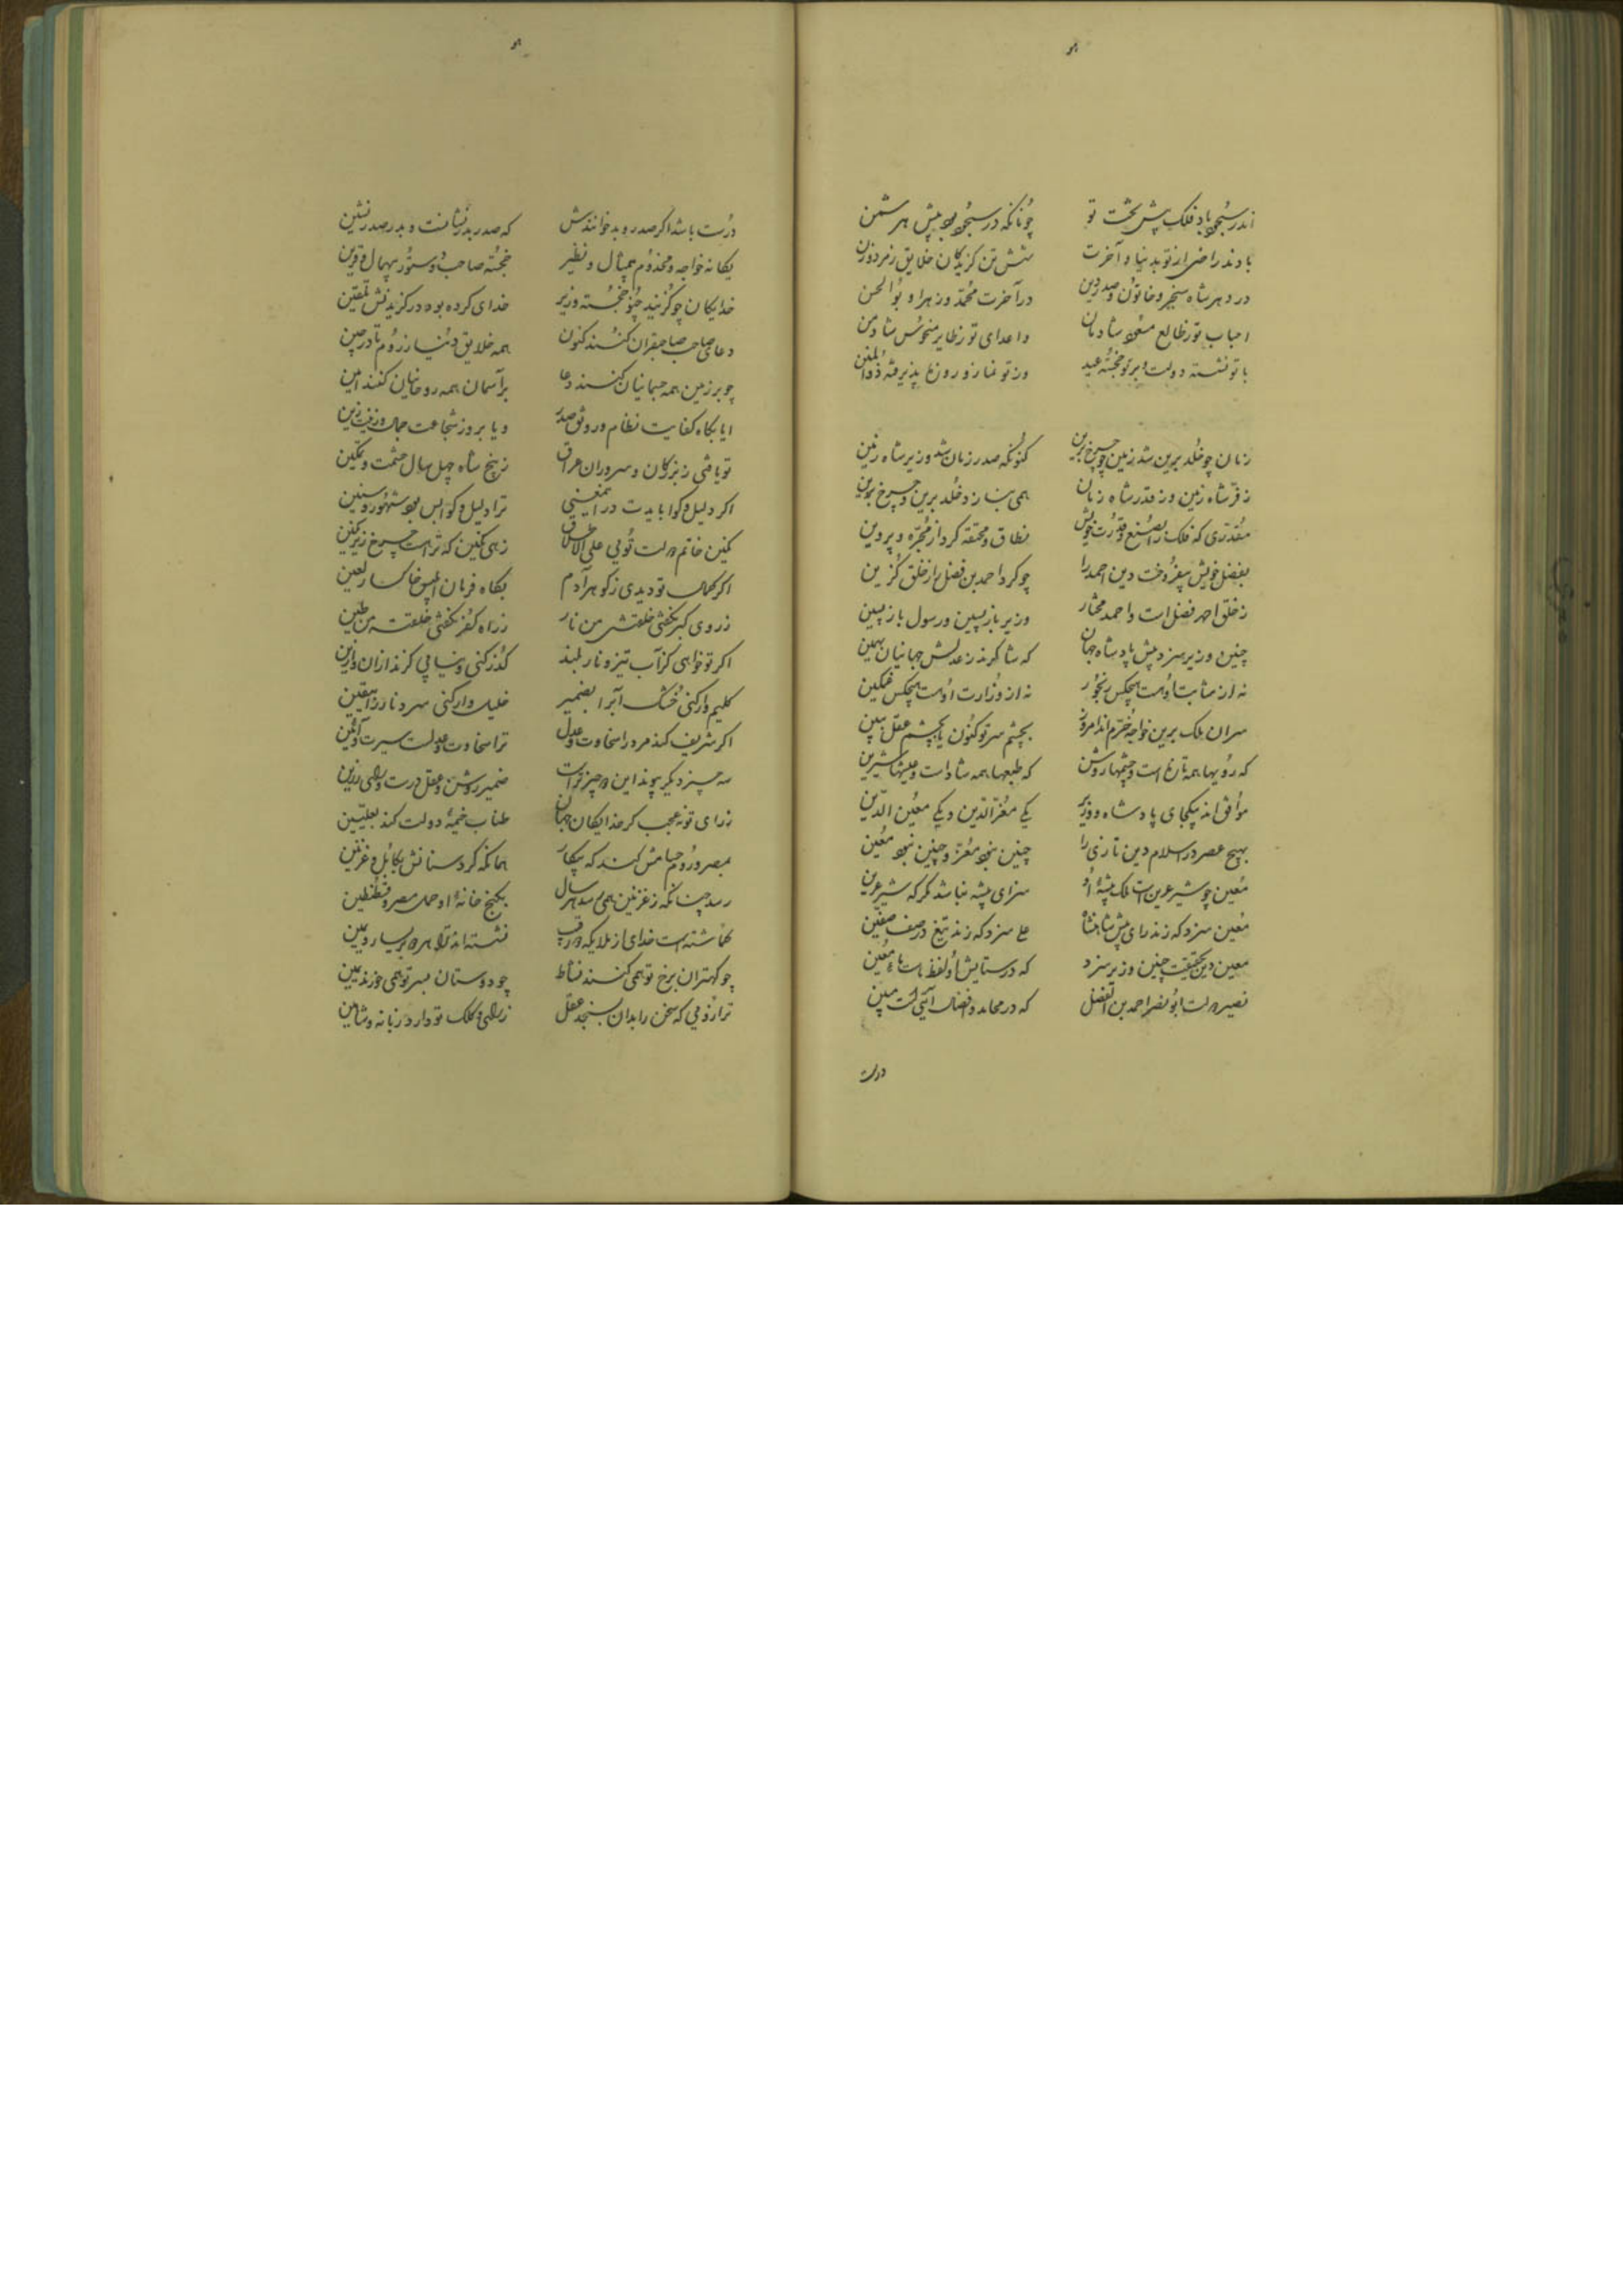 هو
اندر سجود باد فلک پیش تخت تو چونانکه در سجود بود پیش هر شمن
بادند راضی از تو بدنیا و آخرت شش تن گزیدگان خلایق ز مرد و زن
در دهر شاه سنجر و خاتون و صدر دین در آخرت محمد و زهرا و بوالحسن
احباب تو ز طالع مسعود شادمان و اعدای تو ز طایر منحوس
با تو نشسته دولت و بر تو خجسته عید وز تو نماز و روزه پذیرفته ذوالمنن
زمان چو خلد برین شد زمین چو چرخ برین کنونکه صدر زمان شد وزیر شاه زمین
ز فر شاه زمین و ز قدر شاه زمان همی بنازد خلد برین و چرخ برین
مقدری که فلک را بصنع و قدرت خویش نطاق و مخنقه کرد از مجره و پروین
بفضل خویش بیفروخت دین احمد را چو کرد احمد بن فضل را ز خلق گزین
ز خلق احمد فضل است و احمد مختار وزیر بازپسین و رسول بازپسین
چنین وزیر سزد پیش پادشاه جهان که شاکرند ز عدلش جهانیان همین
نه از مثابت اوست هیچکس رنجور نه از وزارت اوست هیچکس غمگین
سران ملک برین خواجه خرم اند امروز بچشم سر تو کنون یا بچشم عقل ببین
که رویها همه تازه است و چشمها روشن که طبعها همه شاد است و عیشها شیرین
موافق اند بیکجای پادشاه و وزیر یکی معز الدین و یکی معین الدین
بهیچ عصر در اسلام دین تازی را چنین نبود معز و چنین نبود معین
معین چو شیر عرین است ملک بیشه او سزای بیشه نباشد مگر که شیر عرین
معین سزد که زند رای پیش شاهنشاه علی سزد که زند تیغ در صف صفین
معین دین بحقیقت چنین وزیر سزد که در ستایش او لفظ ماست ماء معین
نصیر دولت ابونصر احمد بن الفضل که در محامد و افضال آیتی است مبین
درست
هو
درست باشد اگر صدر و بدر خوانندش که صدر بدر نشانست و بدر صدرنشین
یگانه خواجه و مخدوم بیمثال و نظیر خجسته صاحب و دستور بیهمال و قرین
خدایگان چو گزیند چنو خجسته وزیر خدای کرده بود در گزیدنش تلقین
دعای صاحب صاحبقران کنند کنون همه خلایق دنیا ز روم تا در چین
چو بر زمین همه جسمانیان کنند دعا بر آسمان همه روحانیان کنند آمین
ایا بگاه کفایت نظام و رونق صدر و یا بروز شجاعت جمال و زینت زین
تو یافتی ز بزرگان و سروران عراق ز پنج شاه چهل سال حشمت و تمکین
اگر دلیل و گوا بایدت در این معنی ترا دلیل و گوا بس بود شهور و سنین
نگین خاتم دولت توئی علی الاطلاق زهی نگین که تراست چرخ زیر نگین
اگر کمال تو دیدی ز گوهر آدم بگاه فرمان ابلیس خاکسار لعین
ز روی کبر نگفتی خلقتنی من نار ز راه کفر نگفتی خلقته من طین
اگر تو خواهی کز آب تیز و نار بلند گذر کنی و نیابی گزند ازان و ازین
کلیم وار کنی خشک آب را بضمیر خلیل وار کنی سرد نار را بیقین
اگر شریف کند مرد را سخاوت و عدل ترا سخاوت و عدلست سیرت و آئین
سه چیز دیگر پیوند این دو چیز تو است ضمیر روشن و عقل درست و رای رزین
ز رای تو نه عجب گر خدایگان جهان طناب خیمه دولت کند بعلیین
بمصر و روم حسامش کند گه پیکار همانکه کرد سنانش بکابل و غزنین
رسد چنانکه ز غزنین همی رسد هر سال بگنج خانه او حمل مصر و قسطنطین
گماشته است خدای از ملایکه دو رقیب نشسته اند ترا هر دو بر یسار و یمین
چو کهتران برخ تو همی کنند نشاط چو دوستان بسر تو همی خورند یمین
ترازوئی که سخن را بدان بسنجد عقل ز رای و کلک تو دارد زبانه و شاهین